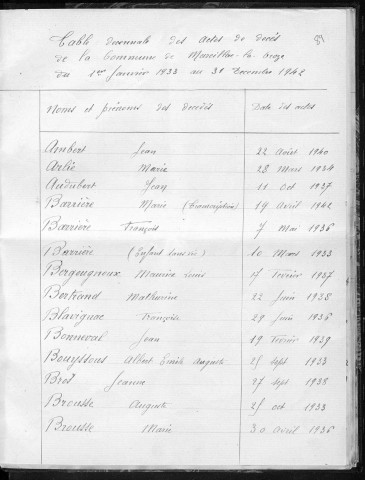 Table décennale des Actes de décès
de la commune de Marcillac-la-Croze
du 1er Janvier 1933 au 31 Decembre 1942
Noms et prénoms des décédés Date des actes
Ambert Jean 22 Août 1940
Arlie Marie 28 Mars 1934
Audubert Jean 11 Oct 1937
Barrière Marie (Transcription) 19 Avril 1942
Barrière François 7 Mai 1936
Barrière (Enfant sans vie) 10 Mars 1933
Bergeugeoux Maurice Louis 7 Février 1937
Bertrand Mathurine 22 Juin 1935
Blavignac Françoise 29 Juin 1936
Bonneval Jean 19 Février 1939
Bouyssous Albert Emile Auguste 25 Sept 1933
Bret Jeanne 27 Sept 1938
Brousse Auguste 25 Oct 1933
Brousse Marie 30 Avril 1936